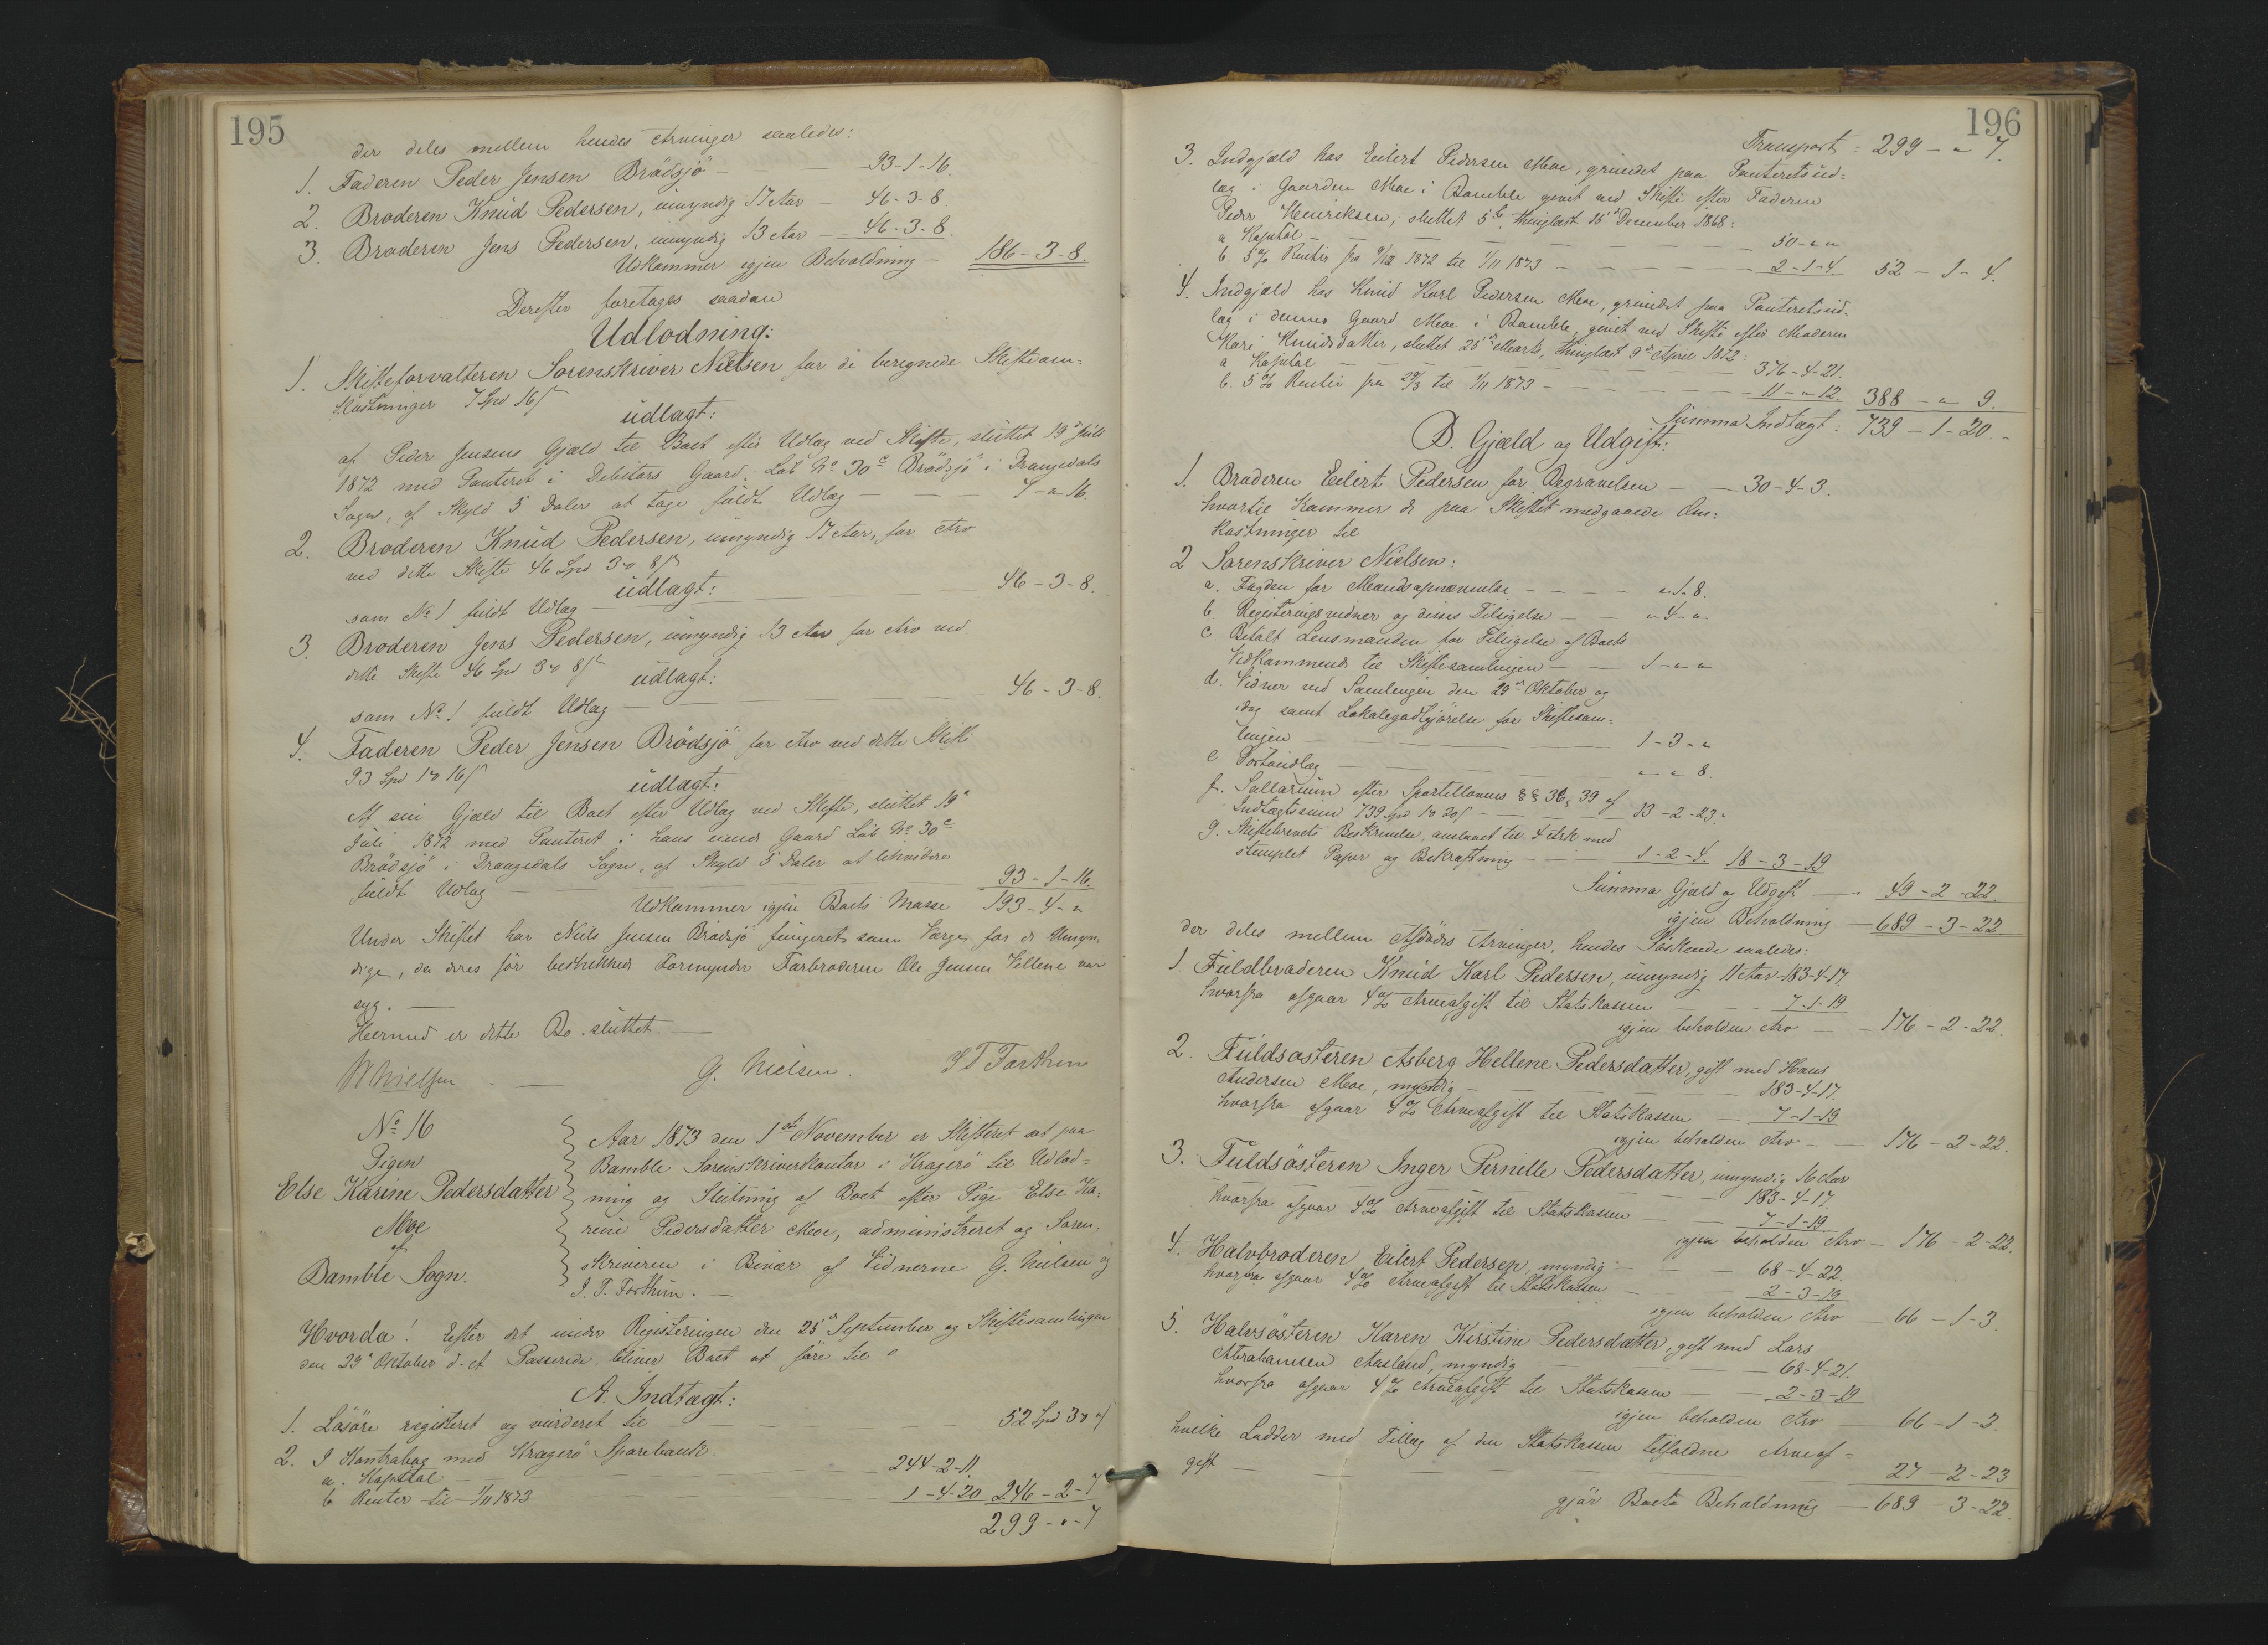 195
der deles mellem hendes Arvinger saaledes:
1. Faderen Peder Jensen Brödsjö — 93-1-16.
2. Broderen Knud Pedersen, umyndig 17 Aar — 46-3-8.
3. Broderen Jens Pedersen, umyndig 13 Aar — 46-3-8.
Udkommer igjen Beholdning — 186-3-8.
Derefter foretages saadan
Udlodning:
1. Skifteforvalteren Sorenskriver Nielsen for de beregnede Skifteom-
kostninger 7 Spd 16 ß
udlagt:
af Peder Jensens Gjæld til Boet efter Udlæg ved Skifte, sluttet 19de Juli
1872 med Panteret i Debitors Gaard Löb No 30c Brödsjö i Drangedals
Sogn, af Skyld 5 Daler at tage fuldt Udlæg — 7 - " 16.
2. Broderen Knud Pedersen, umyndig 17 Aar, for Arv
ved dette Skifte 46 Spd 3 8 ß
udlagt:
som No 1 fuldt Udlæg — 46-3-8.
3. Broderen Jens Pedersen, umyndig 13 Aar for Arv ved
dette Skifte 46 Spd 3 8 ß
udlagt:
som No 1 fuldt Udlæg — 46-3-8.
4. Faderen Peder Jensen Brödsjö for Arv ved dette Skifte
93 Spd 1 16 ß
udlagt:
Af sin Gjæld til Boet efter Udlæg ved Skifte, sluttet 19de
Juli 1872 med Panteret i hans Gaard Löb No 30c
Brödsjö i Drangedals Sogn, af Skyld 5 Daler at
fuldt Udlæg — 93-1-16.
Udkommer igjen Boets Masse 193-4-"
Under Skiftet har Niels Jensen Brödsjö fungeret som Værge for de Umyn-
dige, da deres för beskikkede Formynder Farbroderen Ole Jensen Vellene var
syg. —
Hermed er dette Bo sluttet. —
G. Nielsen.
No 16
Pigen
Else Karine Pedersdatter
Moe
af
Bamble Sogn.
Aar 1873 den 1ste November er Skifteret sat paa
Bamble Sorenskriverkontor i Kragerö til Udlod-
ning og Slutning af Boet efter Pige Else Ka-
rine Pedersdatter Moe, administreret af Soren-
skriveren i Bivær af Vidnerne G. Nielsen og
Hvorda! Efter det under Registeringen den 25de September og Skiftesamlingen
den 29de Oktober d. A. Passerede, bliver Boet at före til
A. Indtægt:
1. Lösöre registeret og vurderet til — 52 Spd 3
2. I Kontrabog med Kragerö Sparebank.
a. Kapital — 244-2-11.
b. Renter til 1/11 1873 — 1-4-20 246-2-7
299-"-7
196
Transport: 299-"-7.
3. Indgjæld hos Eilert Pedersen Moe, grundet paa Panteretsud-
læg i Gaarden Moe i Bamble givet ved Skifte efter Faderen
Peder Henriksen, sluttet 5te, thinglæst 15de December 1868:
a. Kapital — 50-"-"
b. 5% Renter fra 1872 til 1/11 1873 — 2-1-4. 52-1-4.
4. Indgjæld hos Knud Karl Pedersen Moe, grundet paa Panteretsud-
læg i dennes Gaard Moe i Bamble, givet ved Skifte efter Moderen
Kari Knudsdatter, sluttet 25de Marts, thinglæst 9de April 1872:
a. Kapital — 376-4-21.
b. 5% Renter fra 29/3 til 1/11 1873 — 11-"-12. 388-"-9.
Summa Indtægt: 739-1-20.
B. Gjæld og Udgift:
1. Broderen Eilert Pedersen for Begravelsen — 30-4-3.
hvortil kommer de paa Skiftet medgaaede Om-
kostninger til
2 Sorenskriver Nielsen:
a. Fogden for Mændsopnævnelse — "-1-8.
b. Registeringsvidner og disses Tilsigelse — "-4-"
c. Betalt Lensmanden for Tilsigelse af Boets
Vedkommende til Skiftesamlingen — 1-"-"
d. Vidner ved Samlingen den 29de Oktober og
idag samt Lokalegodtgjörelse for Skiftesam-
lingen — 1-3-"
e Portoudlæg — "-"-8.
f. Sallarium efter Sportellovens §§ 36, 39 af
Indtægtssum 739 Spd 1 20 ß — 13-2-23.
g. Skiftebrevets Beskrivelse, anslaaet til 4 Ark med
stemplet Papir og Bekræftning — 1-2-4. 18-3-19
Summa Gjæld og Udgift — 49-2-22.
igjen Beholdning — 689-3-22
der deles mellem Afdödes Arvinger, hendes Söskende saaledes:
1. Fuldbroderen Knud Karl Pedersen, umyndig 11 Aar — 183-4-17.
hvorfra afgaar 4% Arveafgift til Statskassen — 7-1-19
igjen beholden Arv — 176-2-22.
2. Fuldsösteren Asberg Hellene Pedersdatter, gift med Hans
Andersen Moe, myndig — 183-4-17.
hvorfra afgaar 4% Arveafgift til Statskassen — 7-1-19
igjen beholden Arv — 176-2-22.
3. Fuldsösteren Inger Pernille Pedersdatter, umyndig 16 Aar
— 183-4-17.
hvorfra afgaar 4% Arveafgift til Statskassen — 7-1-19
igjen beholden Arv — 176-2-22.
4. Halvbroderen Eilert Pedersen, myndig — 68-4-22.
hvorfra afgaar 4% Arveafgift til Statskassen — 2-3-19
igjen beholden Arv — 66-1-3.
5. Halvsösteren Karen Kirstine Pedersdatter, gift med Lars
Abrahamsen Aasland, myndig — 68-4-21.
hvorfra afgaar 4% Arveafgift til Statskassen — 2-3-19
igjen beholden Arv — 66-1-2.
hvilke Lodder med Tillæg af den Statskassen tilfaldne Arveaf-
gift — 27-2-23
gjör Boets Beholdning — 689-3-22.